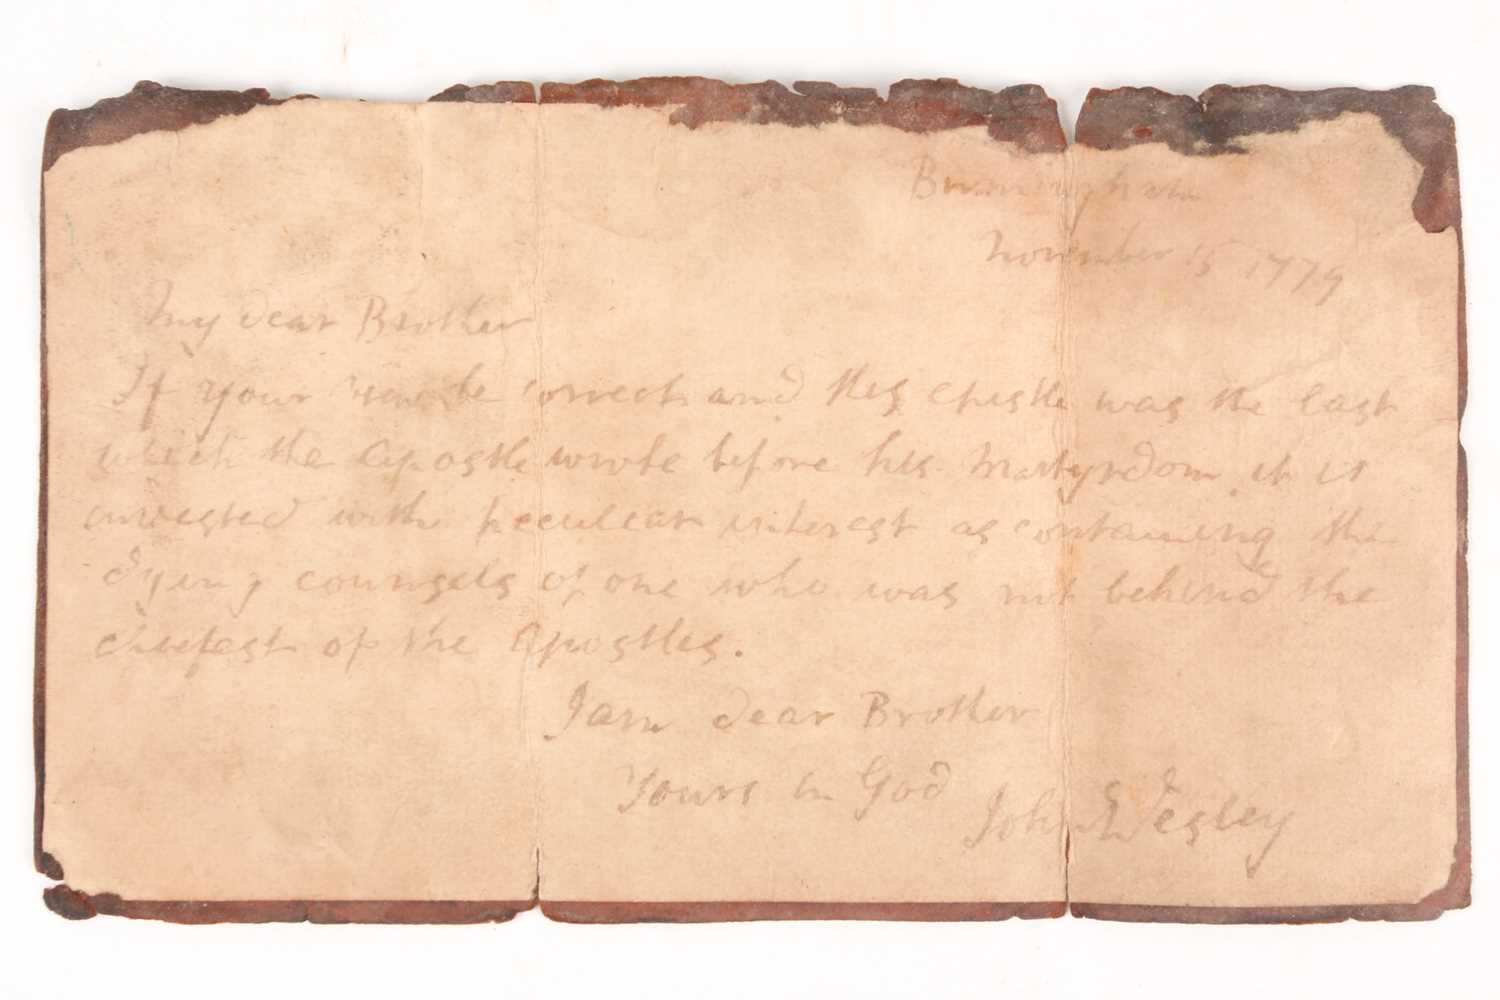 Birmingham
November 15 1779
My dear Brother
If your view be correct and this epistle was the last
which the Apostle wrote before his Martyrdom, it is
invested with peculiar interest as containing the
dying counsels of one who was not behind the
chiefest of the Apostles.
I am dear Brother
Yours in God John Wesley